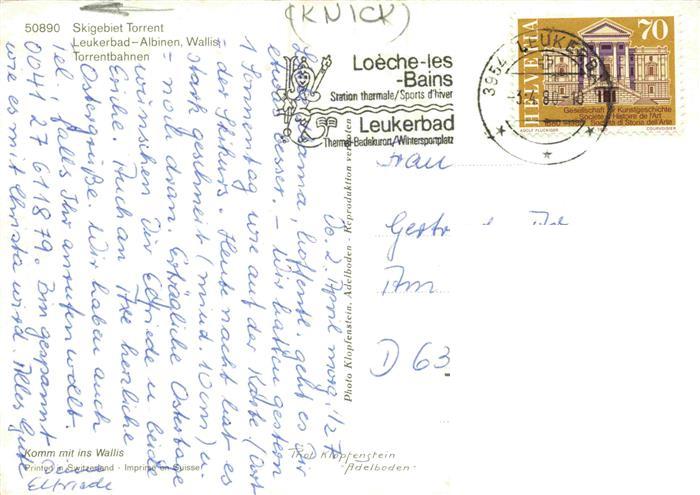 (KNICK)
50890 Skigebiet Torrent
Leukerbad-Albinen, Wallis
Torrentbahnen
Loèche-les
-Bains
Station thermale/Sports d'hiver
Leukerbad
Thermal-Badekurort/Wintersportplatz
3954 LEUKERBAD
HELVETIA
70
Gesellschaft für Kunstgeschichte
Société d'Histoire de l'Art
Società di Storia dell'Arte
1880-1980
ADOLF FLÜCKIGER
COURVOISIER
Do. 2. April morg. 1/2 7
Liebe Mama, hoffentl. geht es Dir
etwas besser. - Wir hatten gestern
1 Sonnentag wie auf der Karte (dort
der Skikurs. Heute nacht hat es
stark geschneit (mind. 10 cm) u.
noch dran. Erträgliche Ostertage
wünschen Dir Elfriede u beide
Enkel. Auch an Axe herzliche
Ostergrüße. Wir haben auch
Tel. falls Ihr anrufen wollt.
0041 27 611879. Bin gespannt
wie es mit Christa wird. Alles Gute
Deine
Elfriede
Frau
D 63
Photo Klopfenstein, Adelboden - Reproduktion verboten
Komm mit ins Wallis
Printed in Switzerland - Imprimé en Suisse
Photo Klopfenstein
"Adelboden"